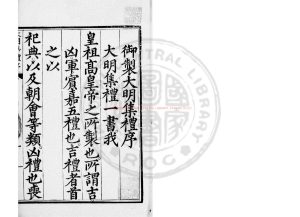 御製大明集禮序
大明集禮一書我
皇祖高皇帝之所製也所謂吉
凶軍賓嘉五禮也吉禮者首
之以
祀典以及朝會等類凶禮也喪
CENTRAL LIBRARY
ROC